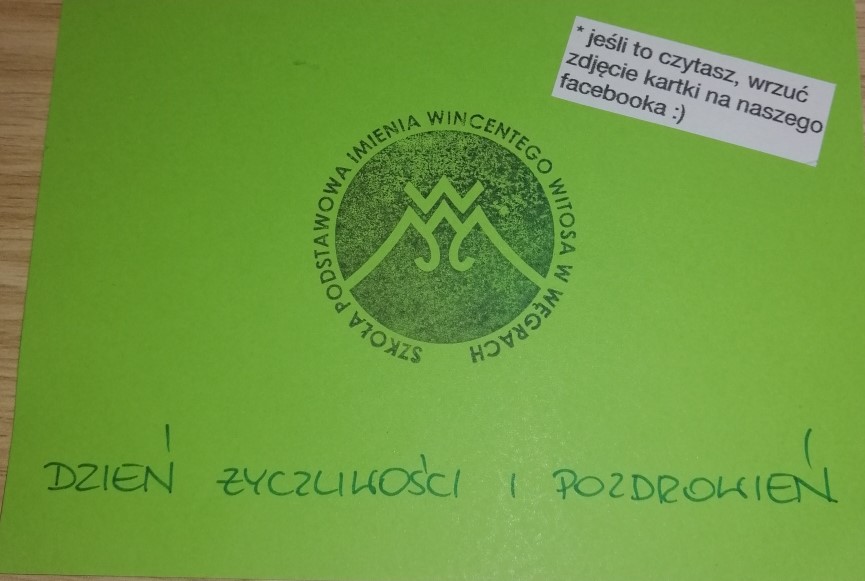 * jeśli to czytasz, wrzuć
zdjęcie kartki na naszego
facebooka :)
SZKOŁA PODSTAWOWA IMIENIA WINCENTEGO WITOSA W WĘGRACH
DZIEŃ ZYCZLIWOŚCI I POZDROWIEŃ